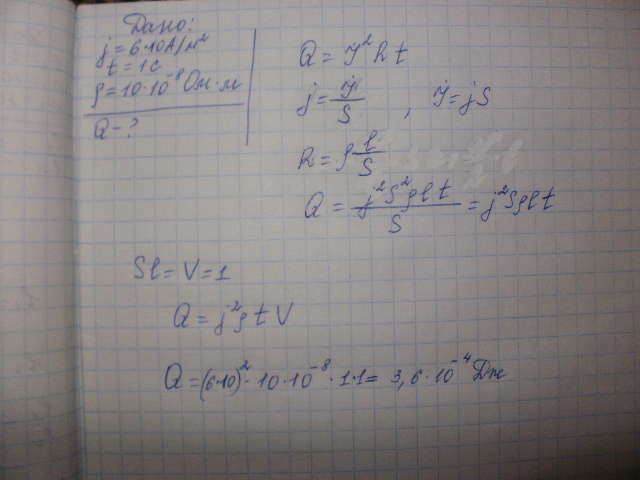 Дано:
j = 6·10 А/м²
t = 1 с
ρ = 10·10⁻⁸ Ом·м
Q - ?
Q = I² R t
j = I/S , I = jS
R = ρ l/S
Q = j²S²ρlt/S = j²Sρlt
Sl = V = 1
Q = j²ρtV
Q = (6·10)² · 10·10⁻⁸ · 1·1 = 3,6·10⁻⁴ Дж